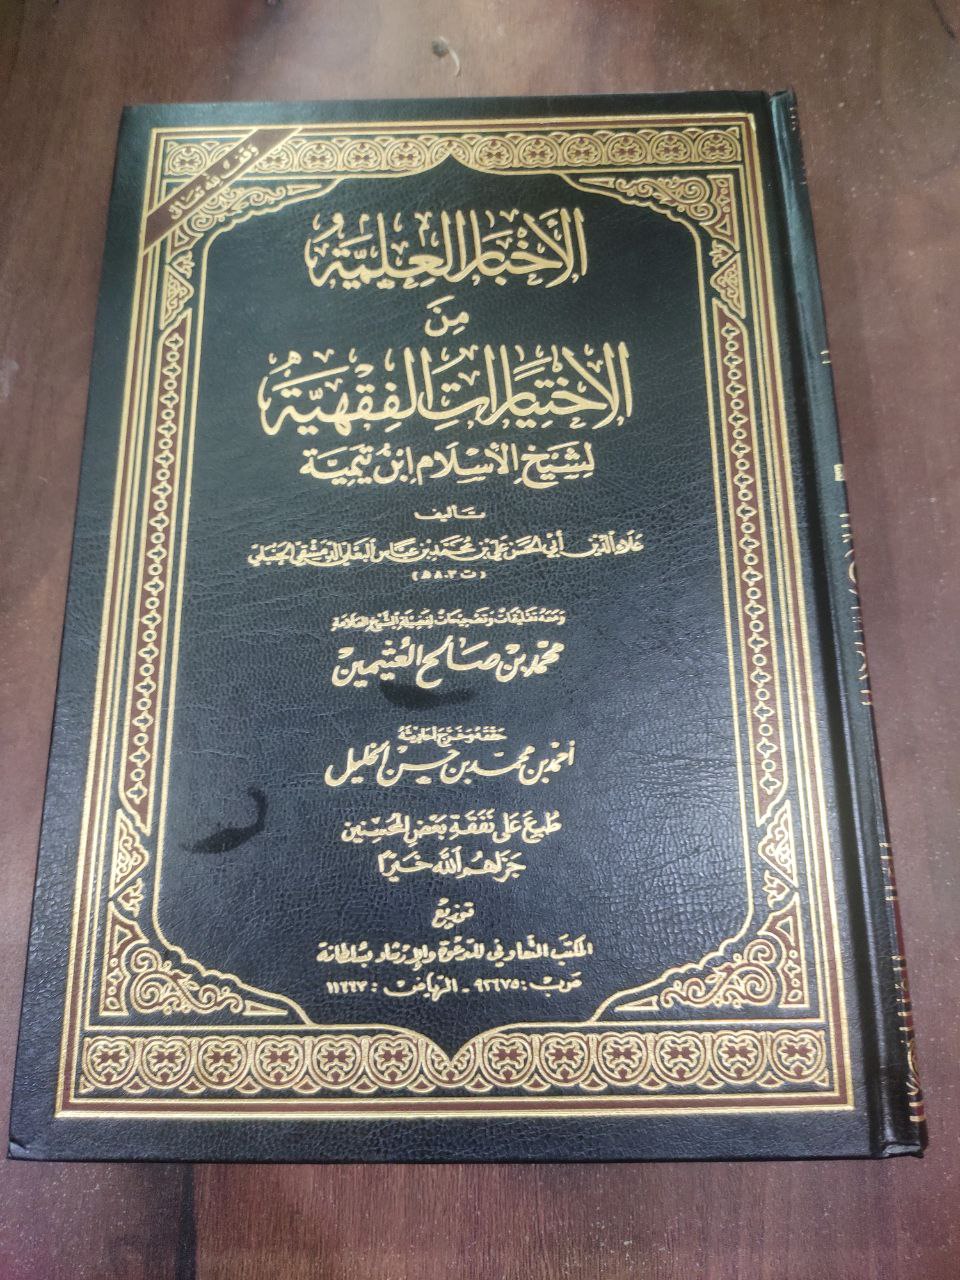 وقف لله تعالى
الأخبار العلمية
من
الاختيارات الفقهية
لشيخ الإسلام ابن تيمية
تأليف
علاء الدين أبي الحسن علي بن محمد بن عباس البعلي الدمشقي الحنبلي
(ت ٨٠٣ هـ)
ومعه تعليقات وتصحيحات لفضيلة الشيخ العلامة
محمد بن صالح العثيمين
حققه وخرج أحاديثه
أحمد بن محمد بن حسن الخليل
طبع على نفقة بعض المحسنين
جزاهم الله خيرًا
توزيع
المكتب التعاوني للدعوة والإرشاد بسلطانة
ص.ب : ٩٢٦٧٥ - الرياض : ١١٦٦٣